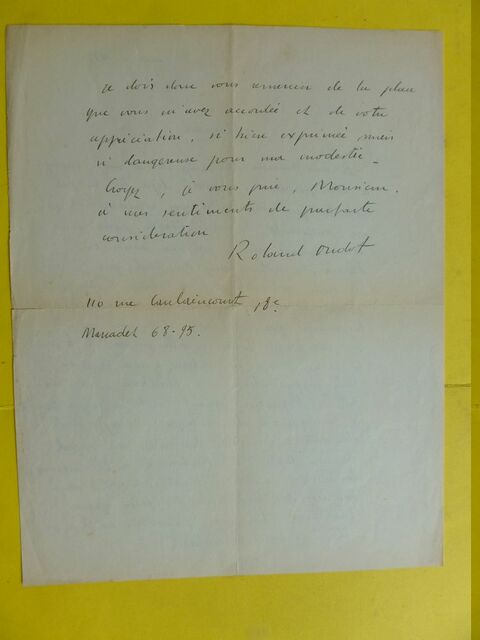 Je dois donc vous remercier de la place
que vous m'avez accordée et de votre
appréciation, si bien exprimée mais
si dangereuse pour ma modestie_
Croyez, je vous prie, Monsieur,
à mes sentiments de parfaite
consideration
Roland Oudot
110 rue Caulaincourt 18e
Marcadet 68-95.